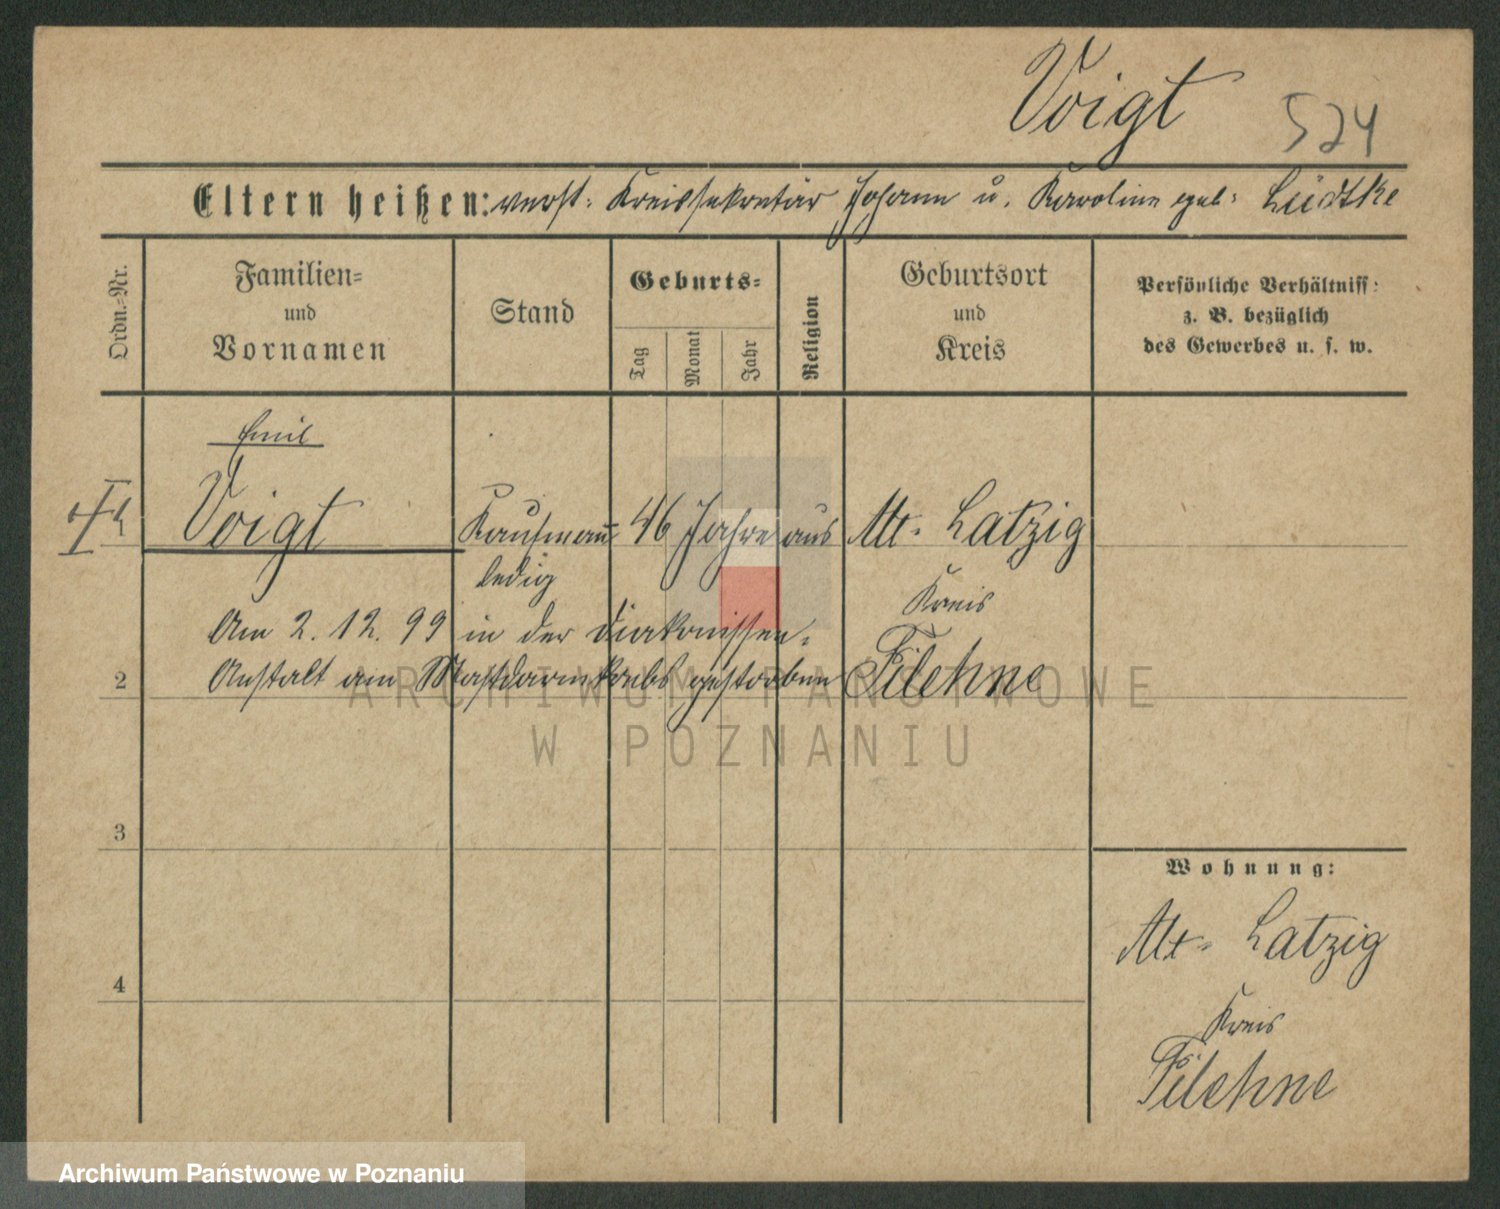 Voigt 524
Eltern heißen: verst. Kreissekretär Johann u. Karoline geb. Lüdtke
Ordn.=Nr.
Familien=
und
Vornamen
Stand
Geburts=
Tag
Monat
Jahr
Religion
Geburtsort
und
Kreis
Persönliche Verhältniss:
z. B. bezüglich
des Gewerbes u. s. w.
Emil
Voigt Kaufmann 46 Jahre aus Alt-Latzig
ledig Kreis
Am 2. 12. 99 in der Diakonissen-
2 Anstalt am Mastdarmkrebs gestorben Filehne
ARCHIWUM PAŃSTWOWE
W POZNANIU
3
Wohnung:
Alt-Latzig
4
Kreis
Filehne
Archiwum Państwowe w Poznaniu